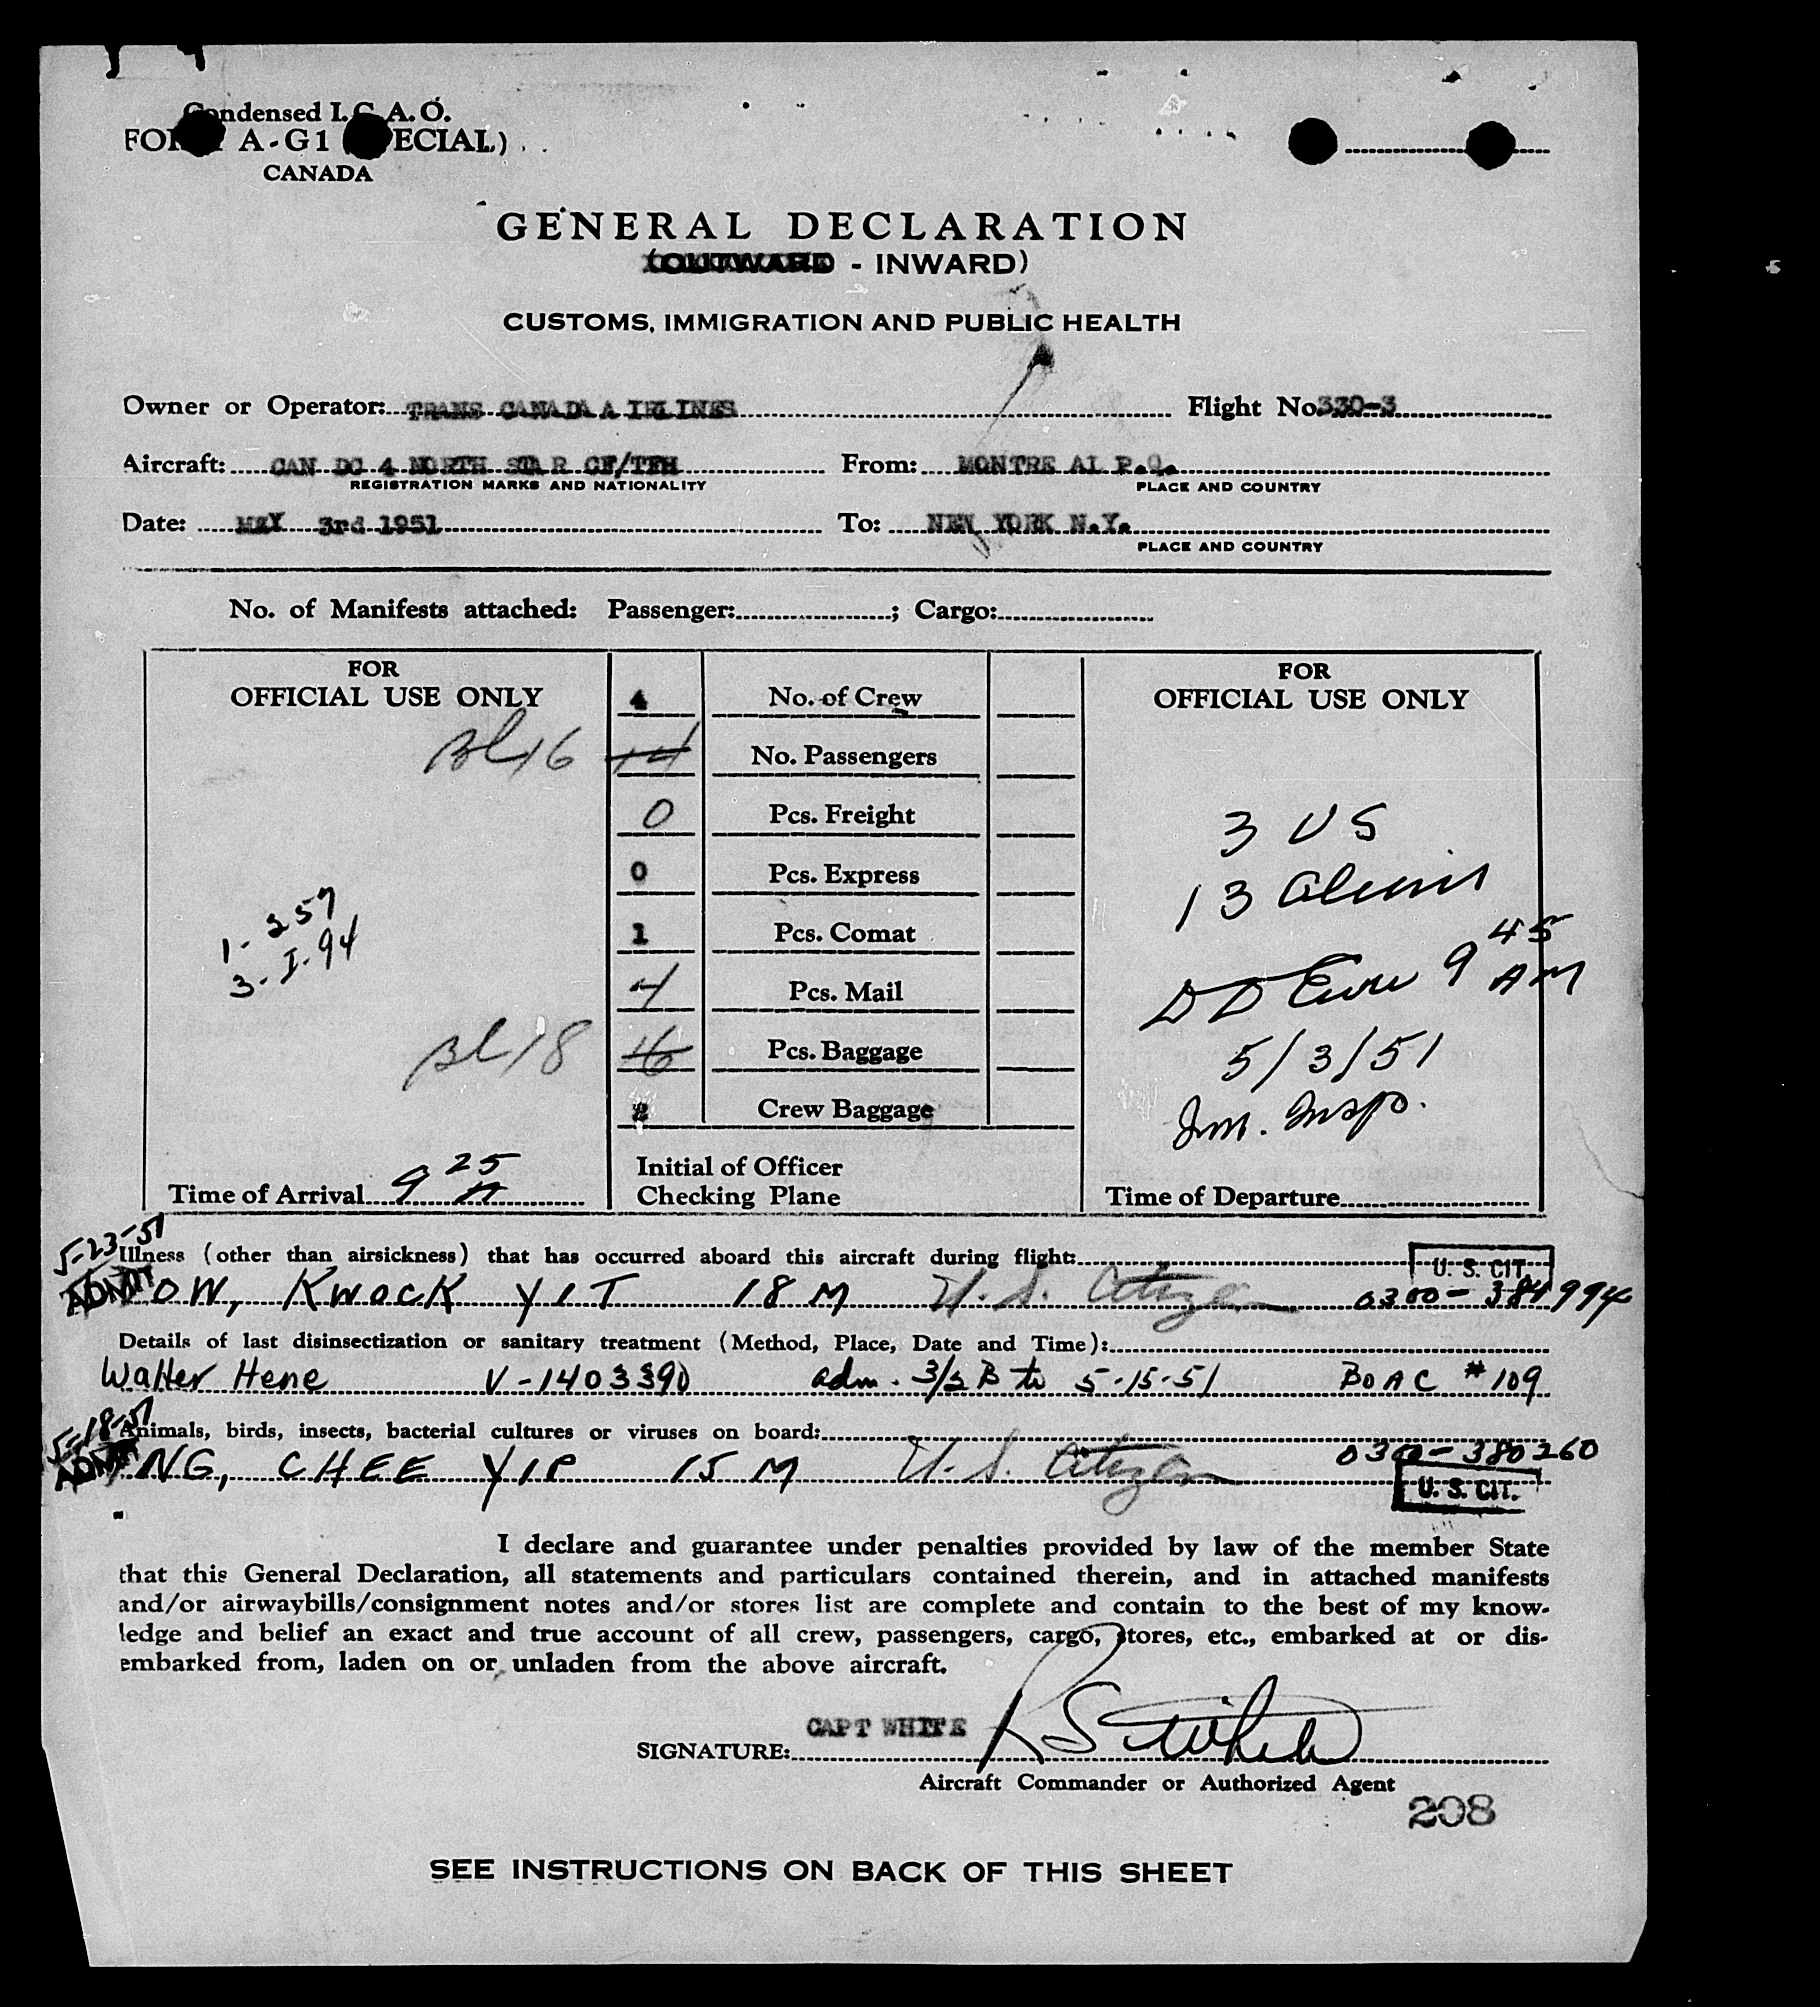 Condensed I.C.A.O.
FORM A-G1 (SPECIAL)
CANADA
GENERAL DECLARATION
(OUTWARD - INWARD)
CUSTOMS, IMMIGRATION AND PUBLIC HEALTH
Owner or Operator: TRANS CANADA AIRLINES Flight No. 330-3
Aircraft: CAN DC 4 NORTH STAR CF/TFH From: MONTREAL P.Q.
REGISTRATION MARKS AND NATIONALITY PLACE AND COUNTRY
Date: MAY 3rd 1951 To: NEW YORK N.Y.
PLACE AND COUNTRY
No. of Manifests attached: Passenger: ; Cargo:
FOR OFFICIAL USE ONLY
4 No. of Crew
FOR OFFICIAL USE ONLY
16 14 No. Passengers
0 Pcs. Freight
3 US
0 Pcs. Express
13 Aliens
1 Pcs. Comat
1-357
3-I-94
9 45 AM
4 Pcs. Mail
18 16 Pcs. Baggage
5/3/51
2 Crew Baggage
Imm. Insp.
Time of Arrival 9 25
Initial of Officer
Checking Plane
Time of Departure
5-23-51
Illness (other than airsickness) that has occurred aboard this aircraft during flight:
U. S. CIT.
ADMIT OW, KWOCK YIT 18 M U.S. Citizen 0300-384994
Details of last disinsectization or sanitary treatment (Method, Place, Date and Time):
Walter Hene V-1403390 adm. 3/2 B to 5-15-51 BOAC #109
5-18-51
Animals, birds, insects, bacterial cultures or viruses on board:
ADMIT NG, CHEE YIP 15 M U.S. Citizen 0300-380260
U. S. CIT.
I declare and guarantee under penalties provided by law of the member State
that this General Declaration, all statements and particulars contained therein, and in attached manifests
and/or airwaybills/consignment notes and/or stores list are complete and contain to the best of my know-
ledge and belief an exact and true account of all crew, passengers, cargo, stores, etc., embarked at or dis-
embarked from, laden on or unladen from the above aircraft.
CAPT WHITE
SIGNATURE: R S White
Aircraft Commander or Authorized Agent
208
SEE INSTRUCTIONS ON BACK OF THIS SHEET